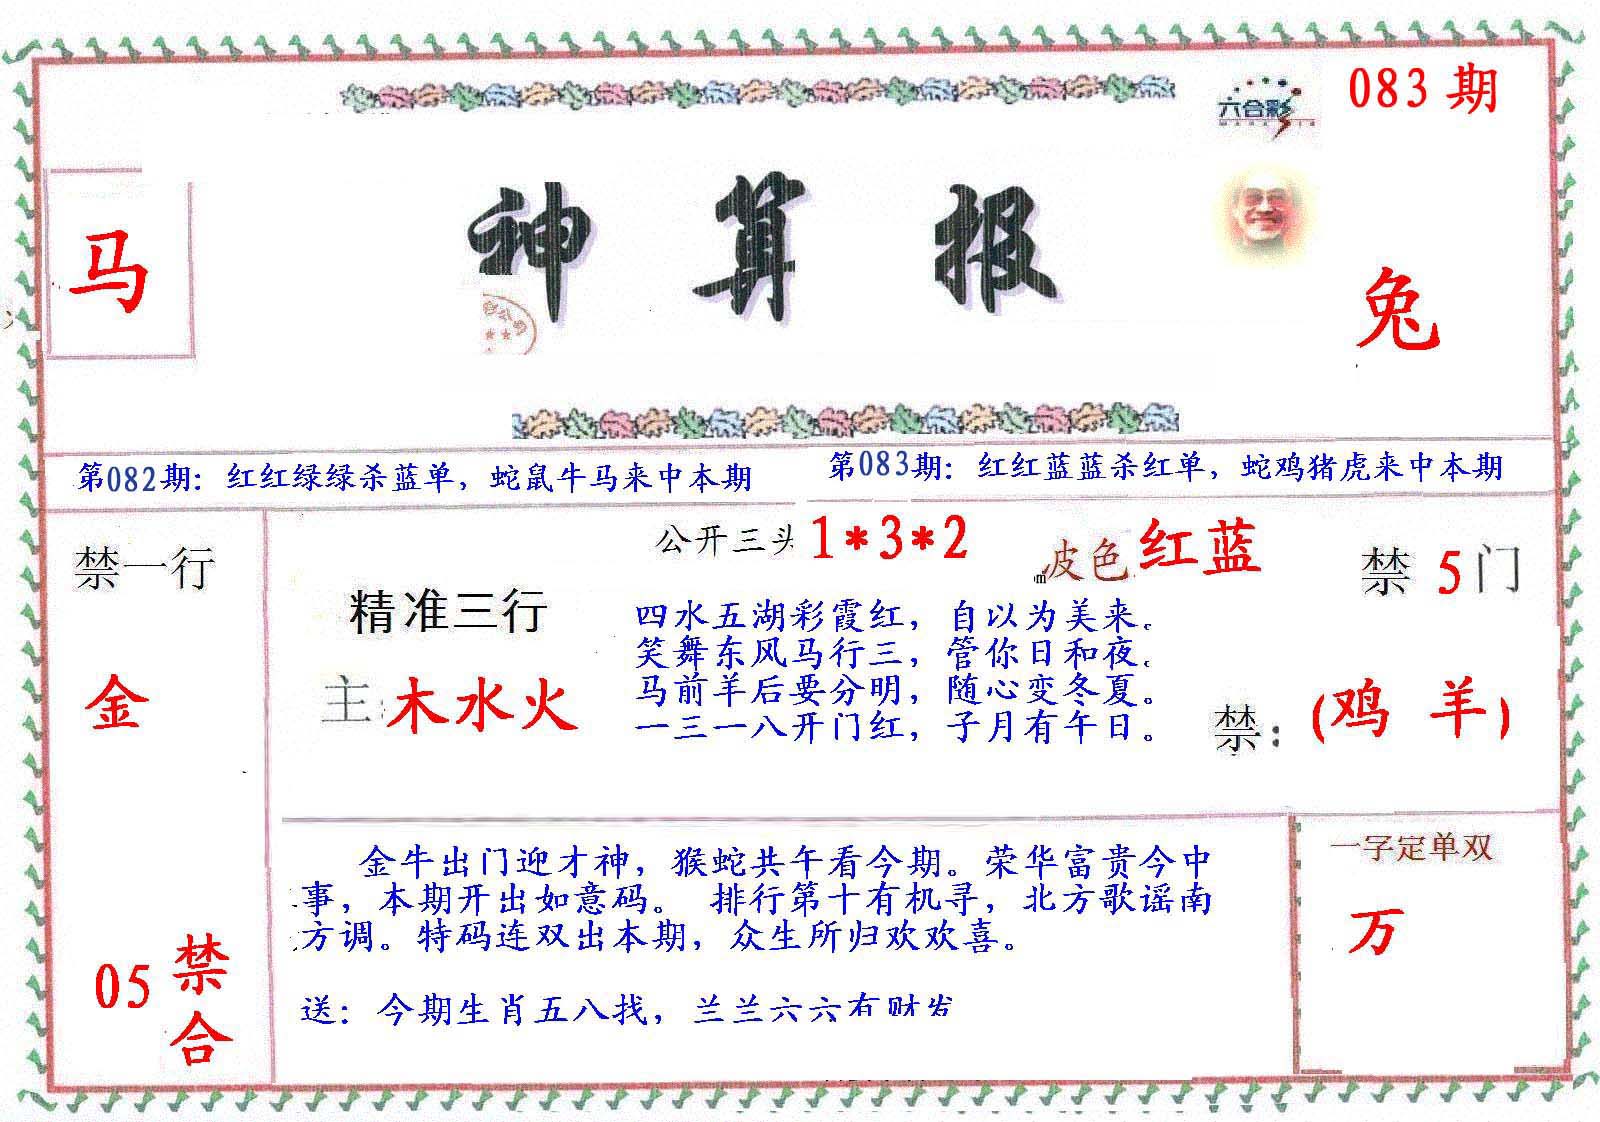 六合彩
083 期
马
神算报
兔
第082期：红红绿绿杀蓝单，蛇鼠牛马来中本期
第083期：红红蓝蓝杀红单，蛇鸡猪虎来中本期
禁一行
金
05
禁合
公开三头 1*3*2
波色 红蓝
禁 5 门
精准三行
主: 木水火
四水五湖彩霞红，自以为美来。
笑舞东风马行三，管你日和夜。
马前羊后要分明，随心变冬夏。
一三一八开门红，子月有午日。
禁: (鸡 羊)
金牛出门迎才神，猴蛇共午看今期。荣华富贵今中
事，本期开出如意码。 排行第十有机寻，北方歌谣南
方调。特码连双出本期，众生所归欢欢喜。
送：今期生肖五八找，兰兰六六有财发
一字定单双
万